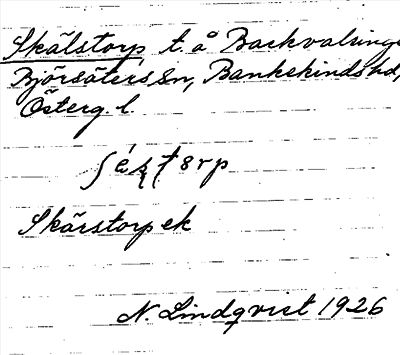 Skälstorp t. å Backvalsinge
Björsäters Sn, Bankekinds hd,
Österg. l.
Skärstorp ek
N. Lindqvist 1926